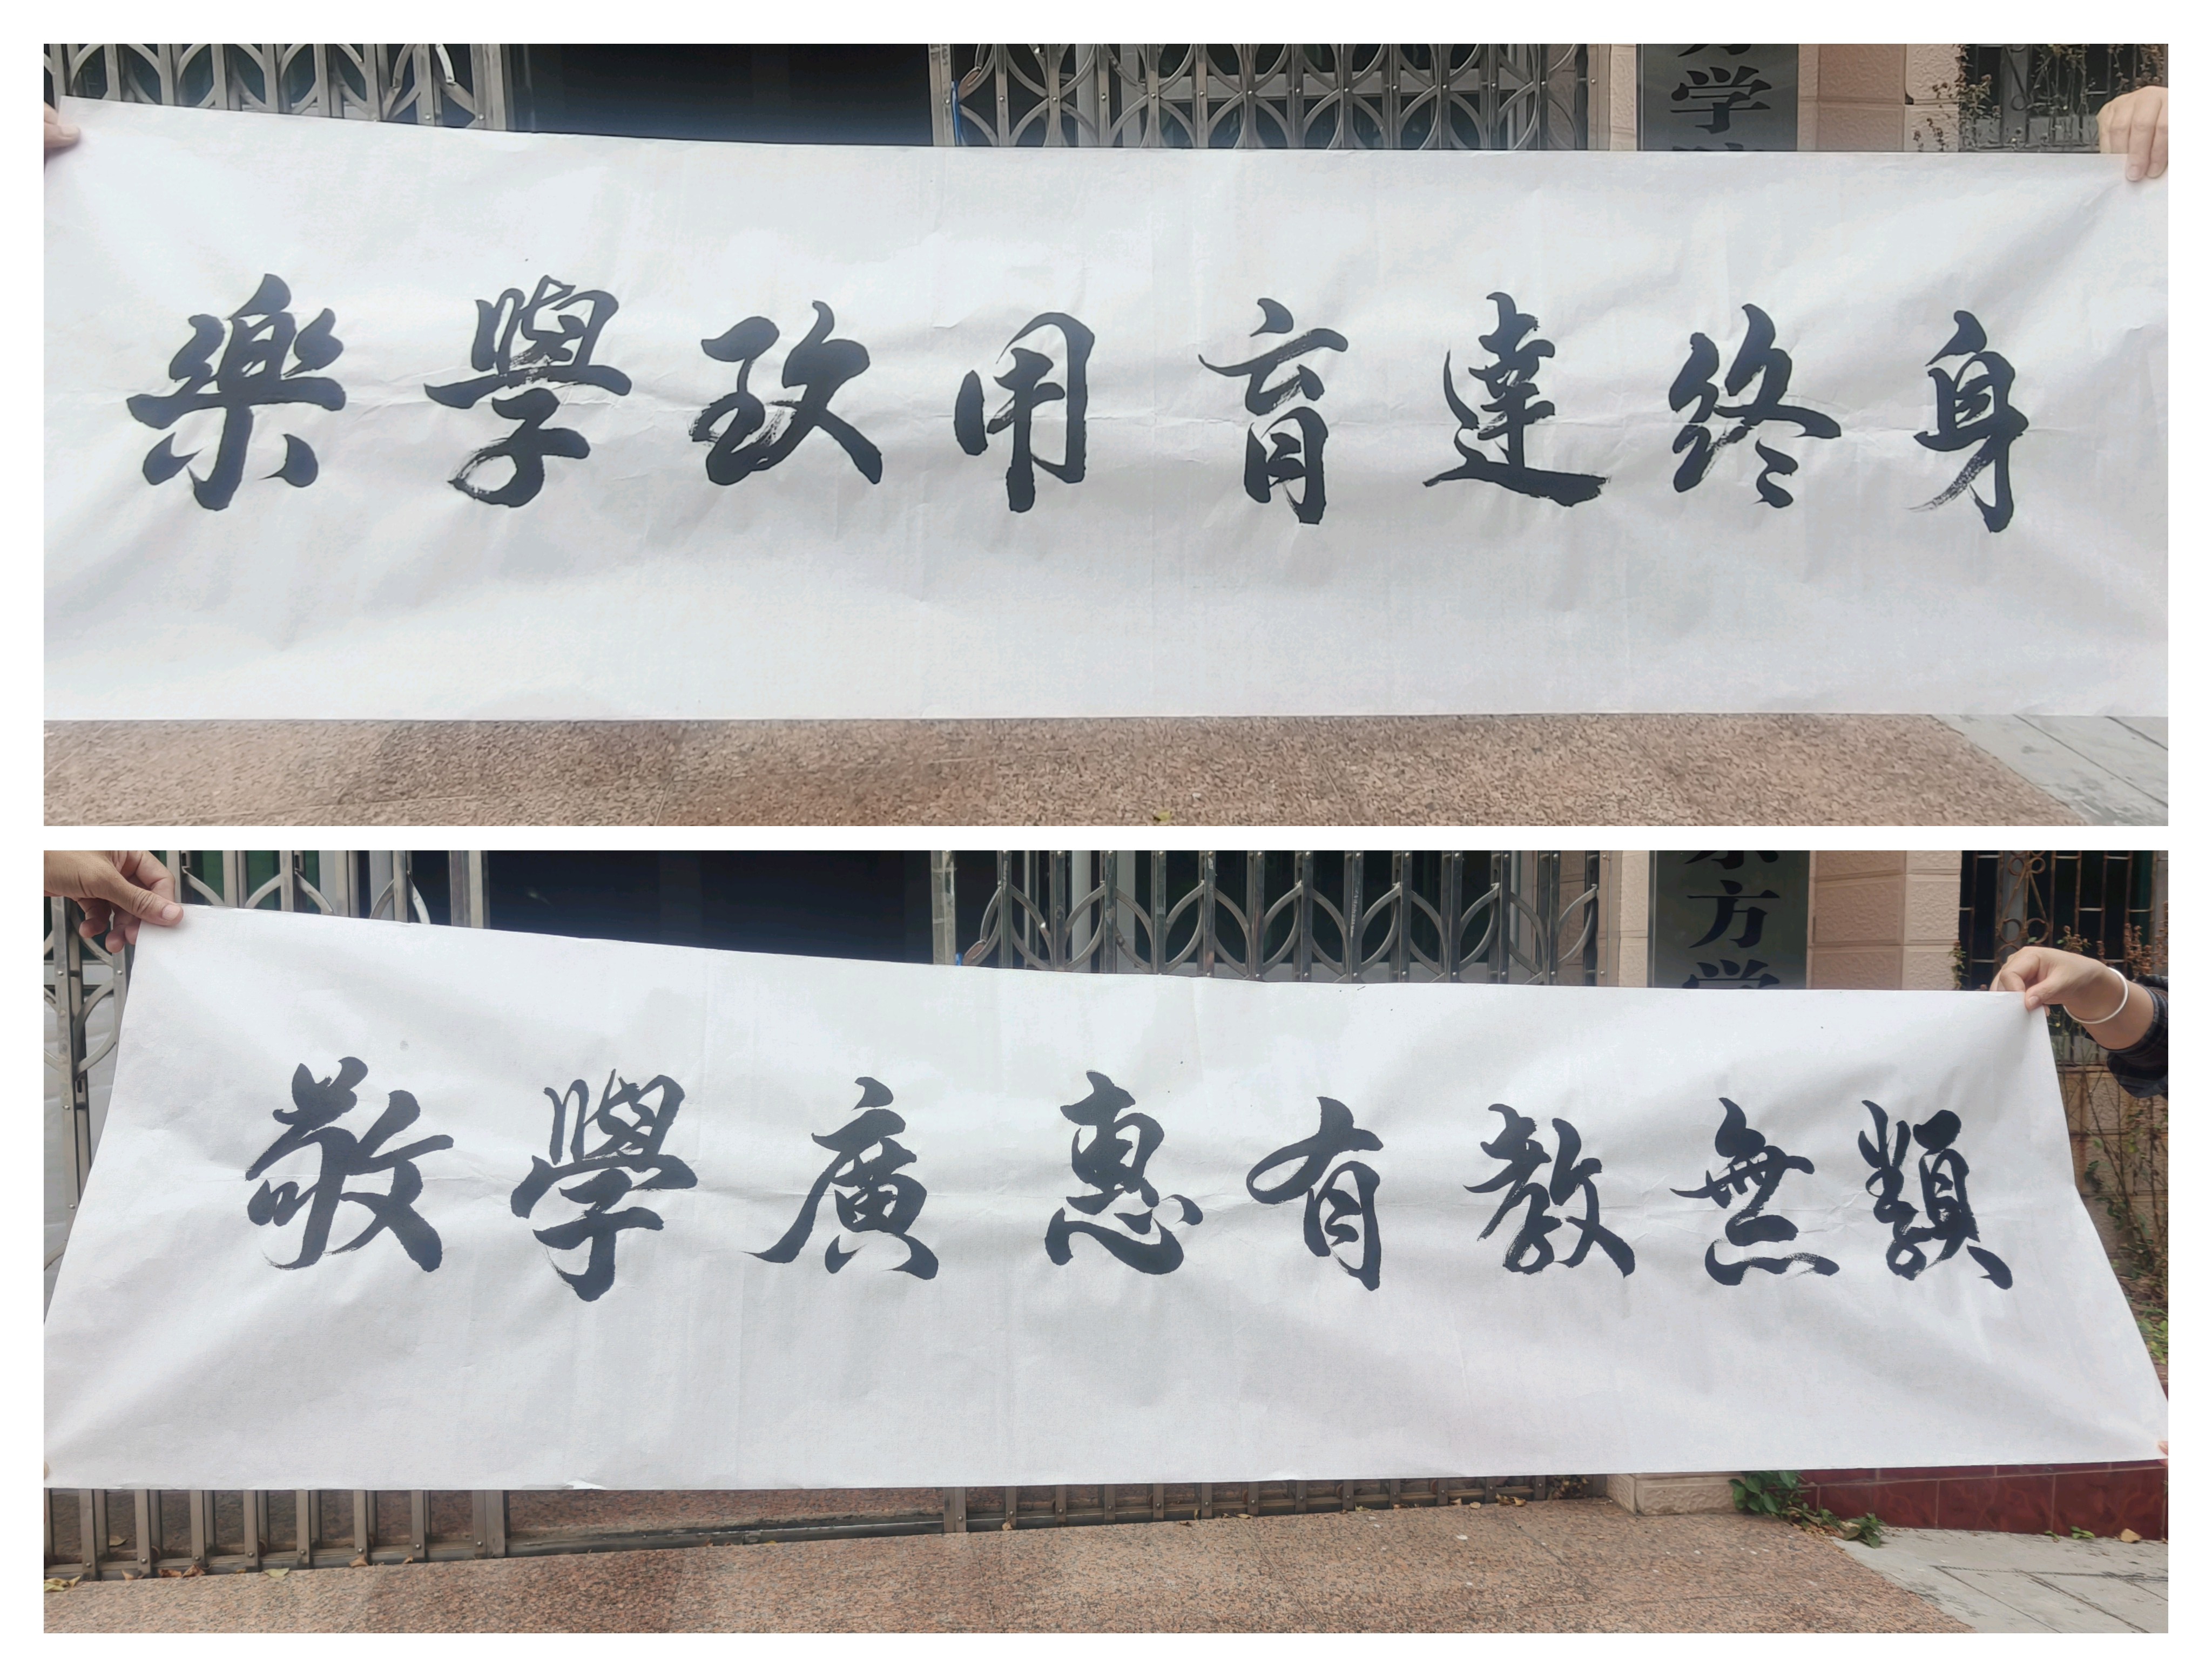 学
樂學致用育達终身
方学
敬學廣惠有教無類